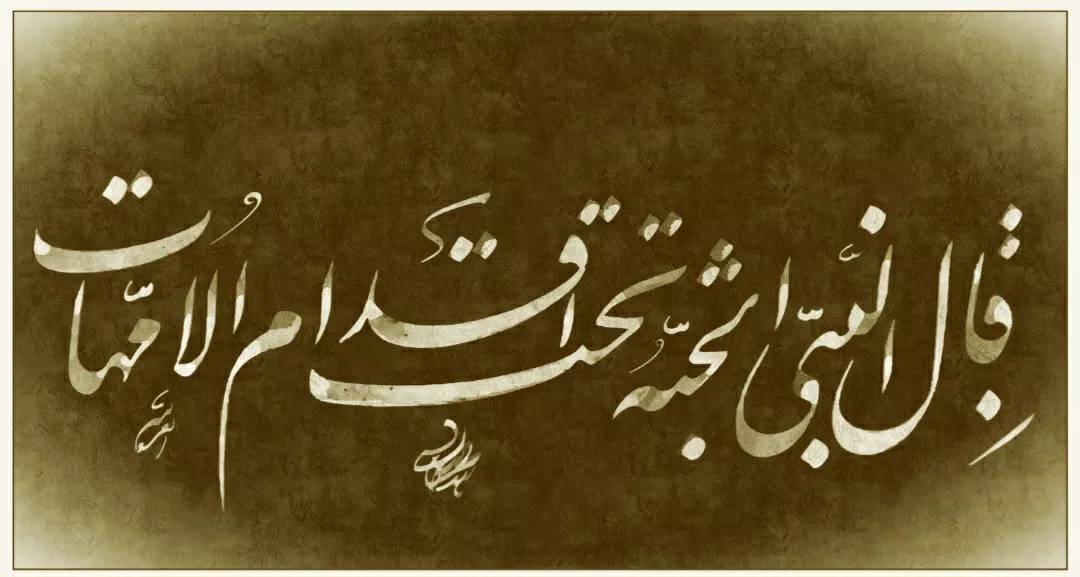 قال النبی الجنّة تحت اقدام الامّهات